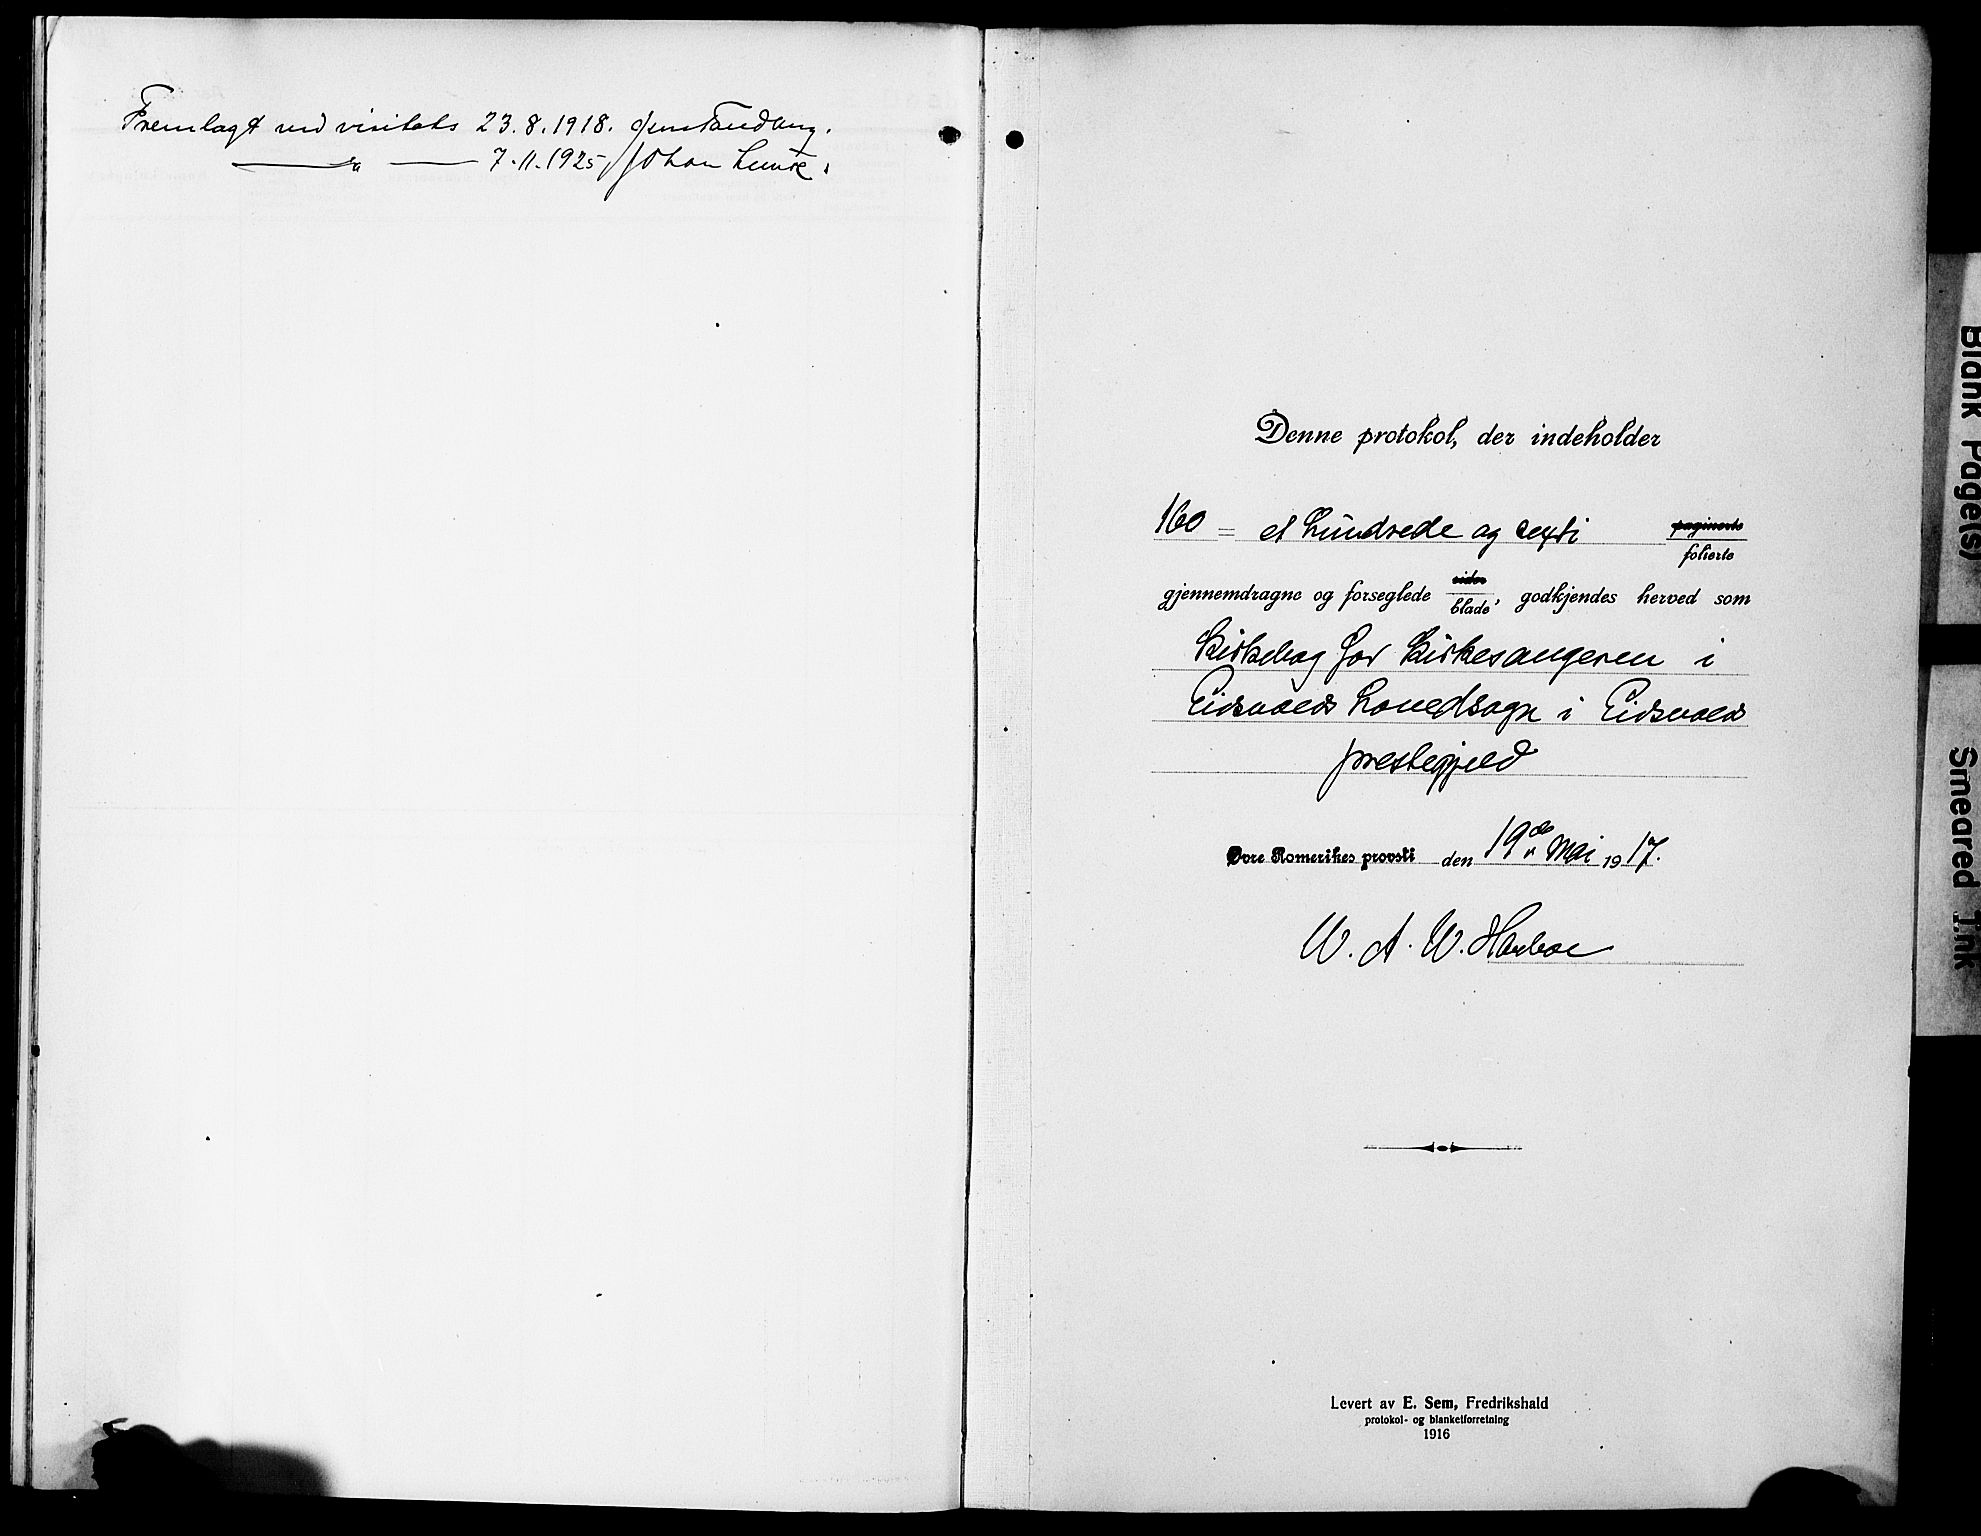 Fremlagt ved visitats 23.8.1918. Jens Tandberg.
— " — 7.11.1925, Johan Lunde.
Denne protokol, der indeholder
160 = et hundrede og sexti paginerte
folierte
gjennemdragne og forseglede sider
blade, godkjendes herved som
Kirkebog for Kirkesangeren i
Eidsvolds hovedsogn i Eidsvolds
prestegjeld
Øvre Romerikes provsti den 19de Mai 1917.
W. A. W. Harboe
Levert av E. Sem, Fredrikshald
protokol- og blanketforretning
1916
Blank Page(s)
Smeared Ink